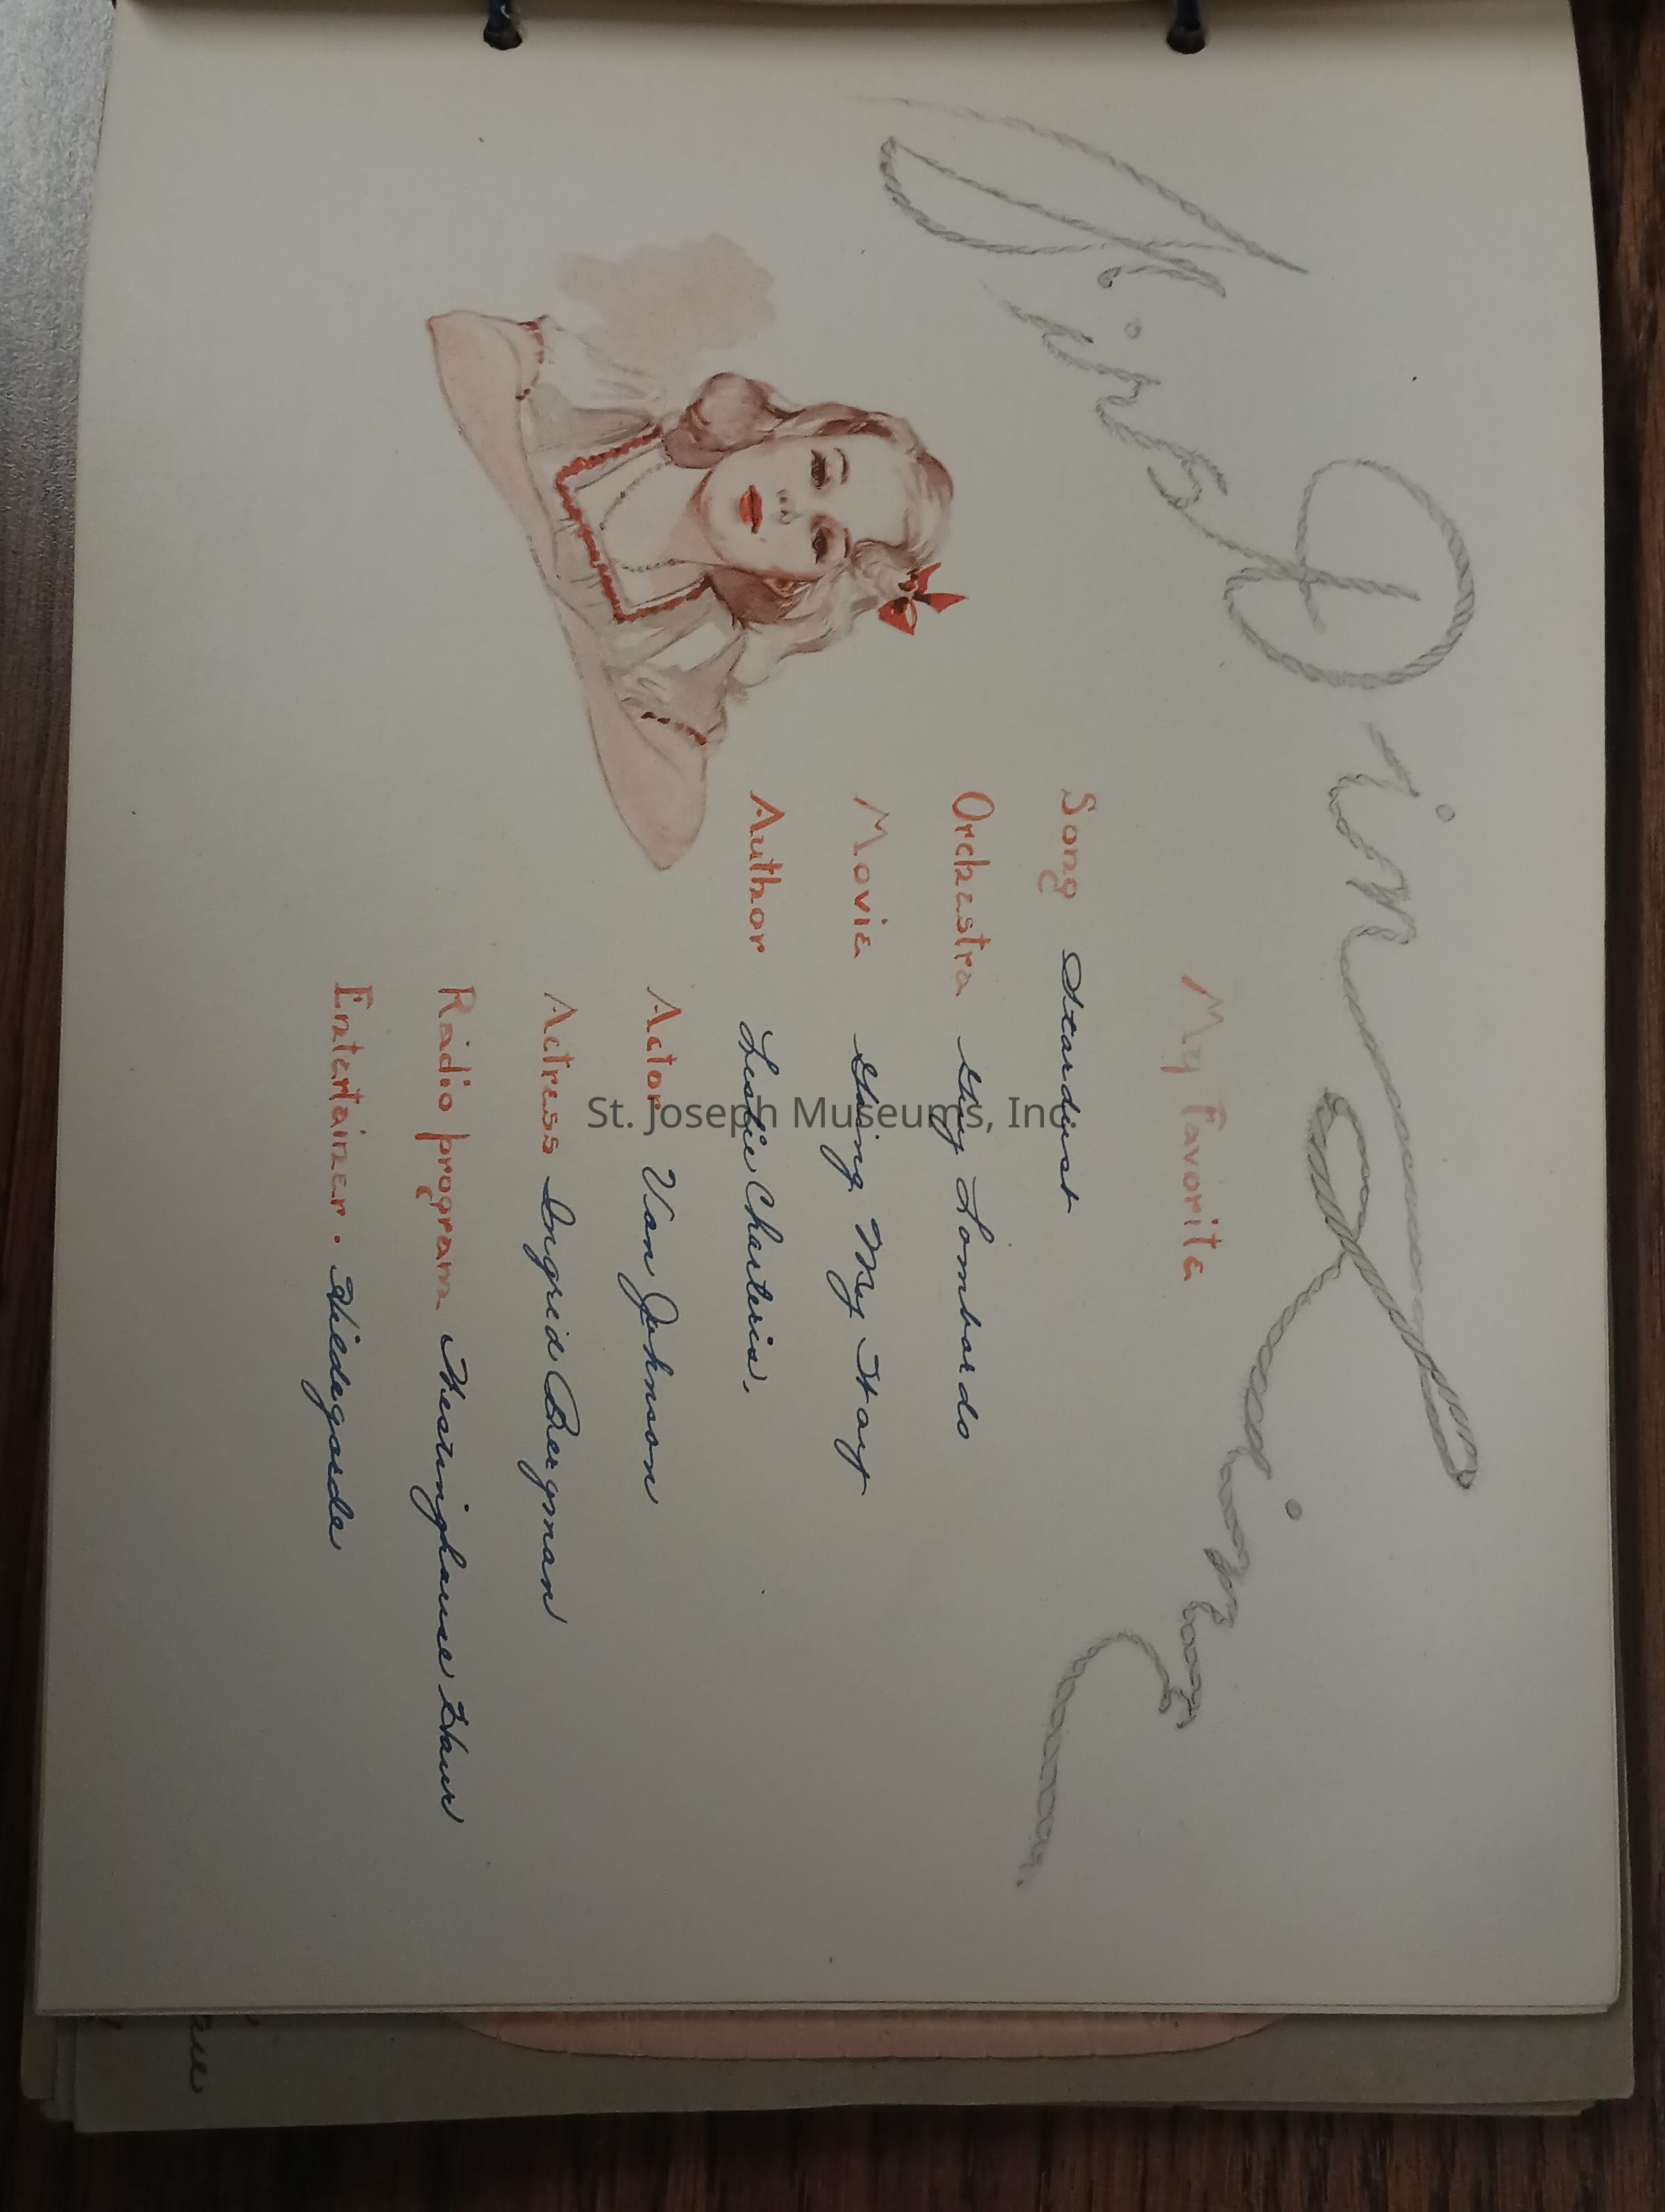 My Favorite
Song Stardust
Orchestra Guy Lombardo
Movie Going My Way
Author Leslie Charteris.
Actor Van Johnson
Actress Ingrid Bergman
Radio program Westinghouse Hour
Entertainer . Hildegarde
St. Joseph Museums, Inc.